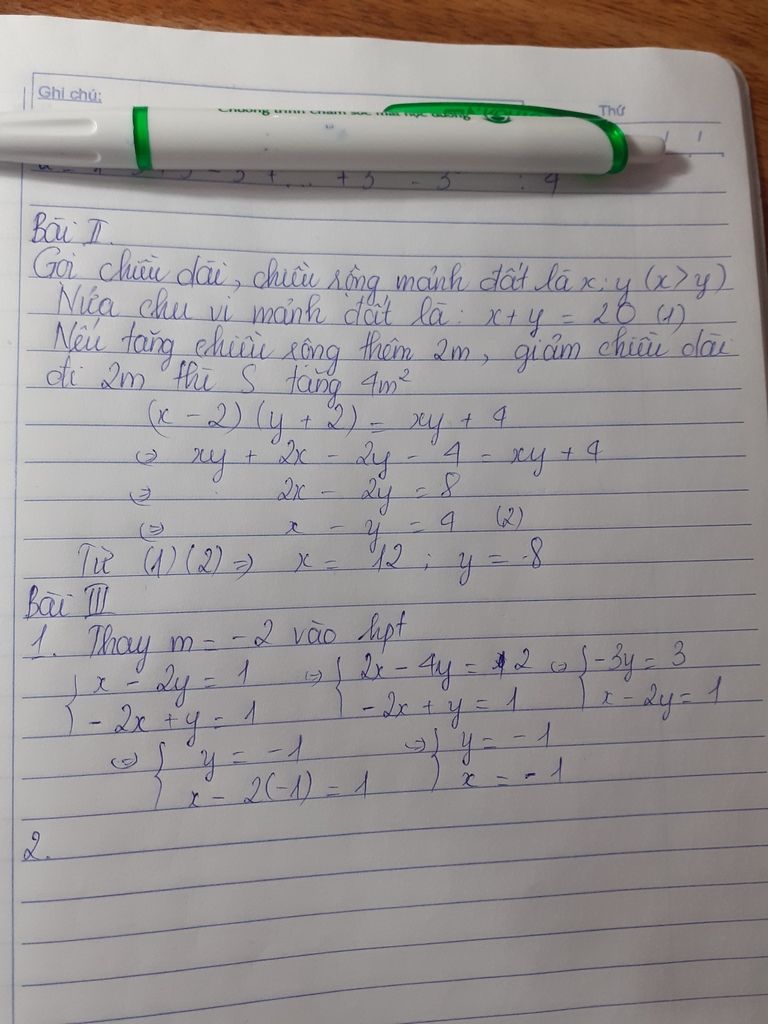 Ghi chú:
Thứ
Chương trình chăm sóc mắt học đường
Bài II.
Gọi chiều dài, chiều rộng mảnh đất là x; y (x > y)
Nửa chu vi mảnh đất là: x + y = 20 (1)
Nếu tăng chiều rộng thêm 2m, giảm chiều dài
đi 2m thì S tăng 4m²
(x - 2) (y + 2) = xy + 4
⇔ xy + 2x - 2y - 4 = xy + 4
⇔ 2x - 2y = 8
⇔ x - y = 4 (2)
Từ (1) (2) ⇒ x = 12 ; y = 8
Bài III
1. Thay m = -2 vào hpt
{ x - 2y = 1 ⇔ { 2x - 4y = 2 ⇔ { -3y = 3
{ -2x + y = 1 { -2x + y = 1 { x - 2y = 1
⇔ { y = -1 ⇔ { y = -1
{ x - 2(-1) = 1 { x = -1
2.